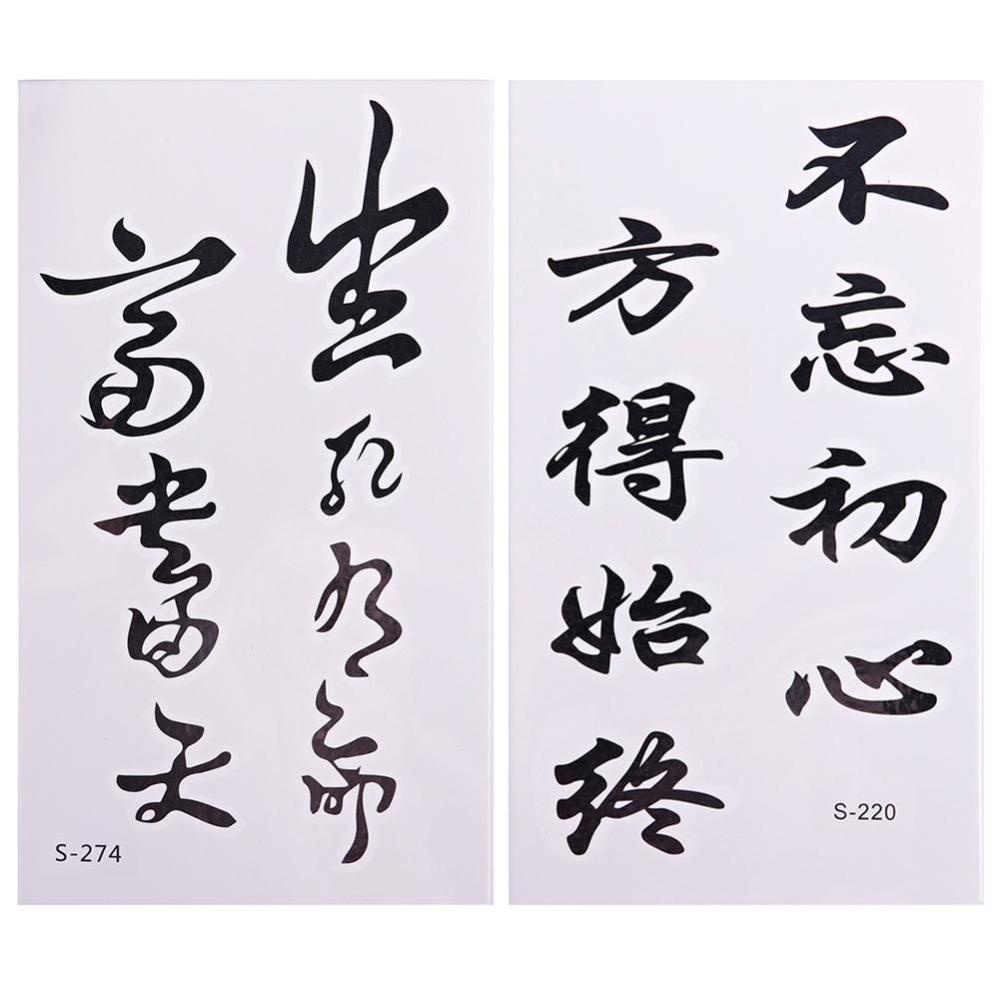 生死有命
富贵在天
S-274
不忘初心
方得始终
S-220